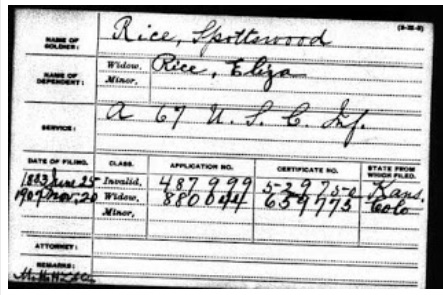 (3-35-6)
NAME OF SOLDIER: Rice, Spottswood
NAME OF DEPENDENT: Widow, Rice, Eliza
Minor,
SERVICE: A 67 U. S. C. Inf.
DATE OF FILING. CLASS. APPLICATION NO. CERTIFICATE NO. STATE FROM WHICH FILED.
1883 June 25 Invalid, 487999 529750 Kans.
1907 Nov. 20 Widow, 880044 659773 Colo
Minor,
ATTORNEY:
REMARKS: